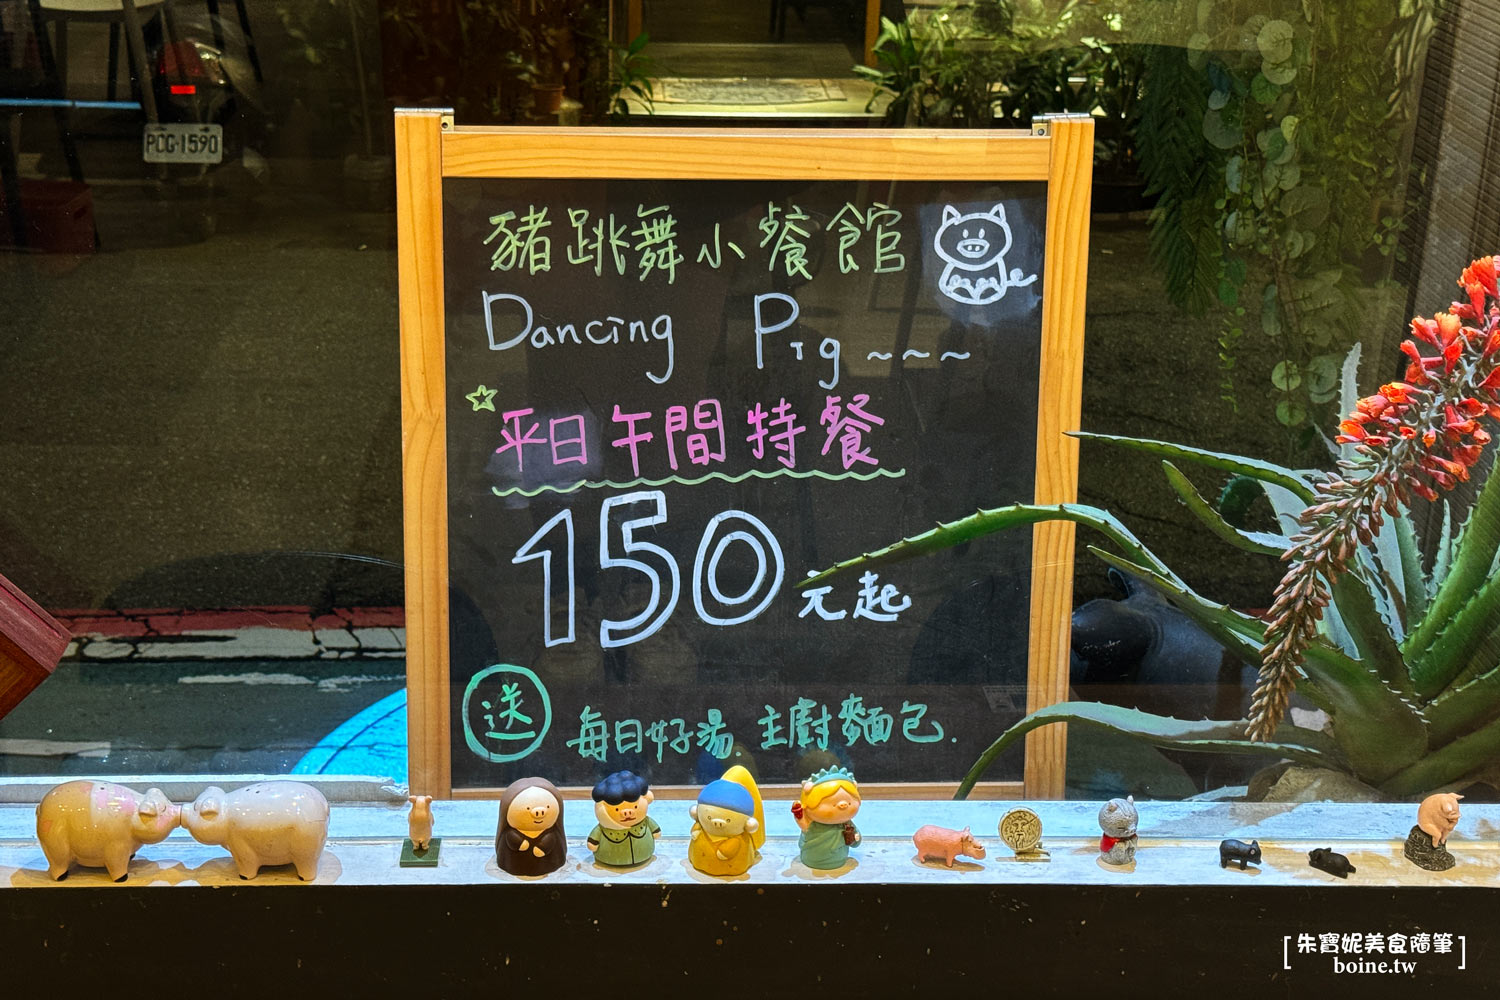 PCG-1590
豬跳舞小餐館
Dancing Pig ~~~
平日午間特餐
150元起
送 每日好湯.主廚麵包.
[朱寶妮美食隨筆]
boine.tw